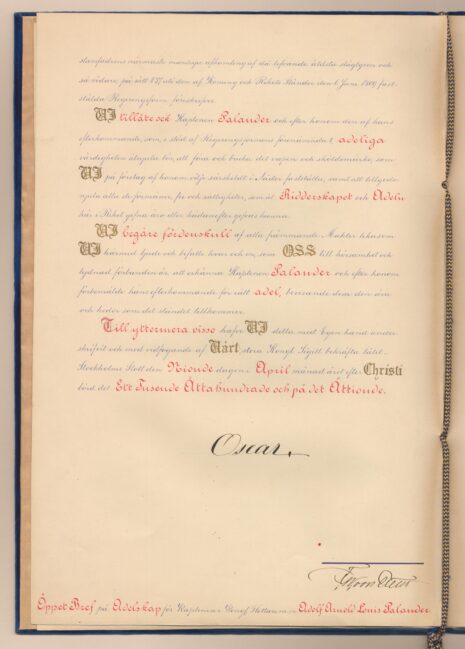 stamfadrens närmaste manliga afkomling af då lefvande äldsta slägtgren och
så vidare, på sätt § 37 uti den af Konung och Rikets Ständer den 6 Juni 1809 fast-
ställda Regeringsform föreskrifver.
VI tilläte ock Kaptenen Palander och efter honom den af hans
efterkommande, som, i stöd af Regeringsformens förenämnda §, adeliga
värdigheten åtnjuta bör, att föra och bruka det vapen och sköldemärke, som
VI på förslag af honom vilja särskeldt i Nåder fastställa, samt att tillgodo-
njuta alla de förmåner, fri- och rättigheter, som åt Ridderskapet och Adeln
här i Riket gifna äro eller hädanefter gifvas kunna.
VI begäre fördenskull af alla främmande Makter likasom
VI härmed bjude och befalle hvar och en, som OSS till hörsamhet och
lydnad förbunden är, att erkänna Kaptenen Palander och efter honom
förbemälde hans efterkommande för rätt adel, bevisande dem den ära
och heder som det ståndet tillkommer.
Till yttermera visso hafve VI detta med Egen hand under-
skrifvit och med vidfogande af Vårt stora Kongl. Sigill bekräfta låtit.
Stockholms Slott den Nionde dagen i April månad året efter Christi
börd det Ett Tusende Åttahundrade och på det Åttionde.
Oscar.
Öppet Bref på Adelskap för Kaptenen i Kongl. Flottan m. m. Adolf Arnold Louis Palander